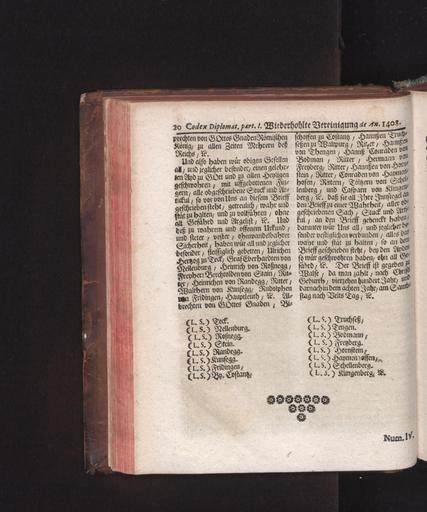 20 Codex Diplomat. part. I. Wiederhohlte Vereinigung de An. 1408.
prechten von GOttes Gnaden Römischen
König, zu allen Zeiten Mehrern deß
Reichs, ꝛc.
Und also haben wir obigen Gesellen
all, und jeglicher besonder, einen gelehr-
ten Ayd zu GOtt und zu allen Heyligen
geschwohren, mit uffgebottenen Fin-
gern, alle obgeschriebene Stuck und Ar-
ticul, so vor von Uns an diesem Brieff
geschrieben steht, getreulich, wahr und
stät zu halten, und zu vollführen, ohne
all Gefährd und Arglist, ꝛc. Und
deß zu wahrem und offenem Urkund,
und steter, vester, ohnwandelbahrer
Sicherheit, haben wir all und jeglicher
besonder, fleissiglich gebetten, Ulrichen
Hertzog zu Teck, Graf Eberhardten von
Nellenburg, Heinrich von Roßnegg,
Freyherr Berchtolden von Stein, Rit-
ter, Heinrichen von Randegg, Ritter,
Walthern von Künsegg, Rudolphen
von Fridingen, Hauptleuth, ꝛc. Al-
brechten von GOttes Gnaden, Bi-
schoffen zu Costantz, Hannßen Truch-
seßen zu Waltpurg, Ritter, Hannßen
von Thengen, Hannß Conraden von
Bodman, Ritter, Hermann von
Freyberg, Ritter, Hannßen von Horn-
stein, Ritter, Conraden von Haymen-
hofen, Rittern, Töltzern von Schel-
lenberg, und Casparn von Klingen-
berg, ꝛc. daß sie all Ihre Innsigel an
den Brieff zu einer Wahrheit, aller ob-
geschriebenen Sach, Stuck und Arti-
kul, an den Brieff gehenckt haben,
darunter wir Uns all, und jeglicher be-
sonder vestiglichen verbunden, alles das
wahr und stät zu halten, so an dem
Brieff geschrieben steht, bey den Ayden
so wir geschwohren haben, ohn all Ge-
fährd, ꝛc. Der Brieff ist gegeben zu
Walse, da man zahlt, nach Christi
Geburth, vierzehen hundert Jahr, und
darnach in dem achten Jahr, am Sambs-
tag nach Veits Tag, ꝛc.
(L. S.) Teck.
(L. S.) Nellenburg.
(L. S.) Roßnegg.
(L. S.) Stein.
(L. S.) Randegg.
(L. S.) Künsegg.
(L. S.) Fridingen,
(L. S.) By. Costantz,
(L. S.) Truchseß,
(L. S.) Tengen.
(L. S.) Bodmann,
(L. S.) Freyberg.
(L. S.) Hornstein,
(L. S.) Haymenhoffen,
(L. S.) Schellenberg.
(L. S.) Klingenberg, ꝛc.
Num. IV.